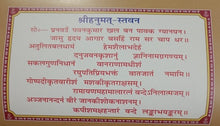 श्रीहनुमत्-स्तवन
सो०-प्रनवउँ पवनकुमार खल बन पावक ग्यानघन।
जासु हृदय आगार बसहिं राम सर चाप धर॥
अतुलितबलधामं हेमशैलाभदेहं
दनुजवनकृशानुं ज्ञानिनामग्रगण्यम्।
सकलगुणनिधानं वानराणामधीशं
रघुपतिप्रियभक्तं वातजातं नमामि॥
गोष्पदीकृतवारीशं मशकीकृतराक्षसम्।
रामायणमहामालारत्नं वन्देऽनिलात्मजम्॥
अञ्जनानन्दनं वीरं जानकीशोकनाशनम्।
कपीशमक्षहन्तारं वन्दे लङ्काभयङ्करम्॥